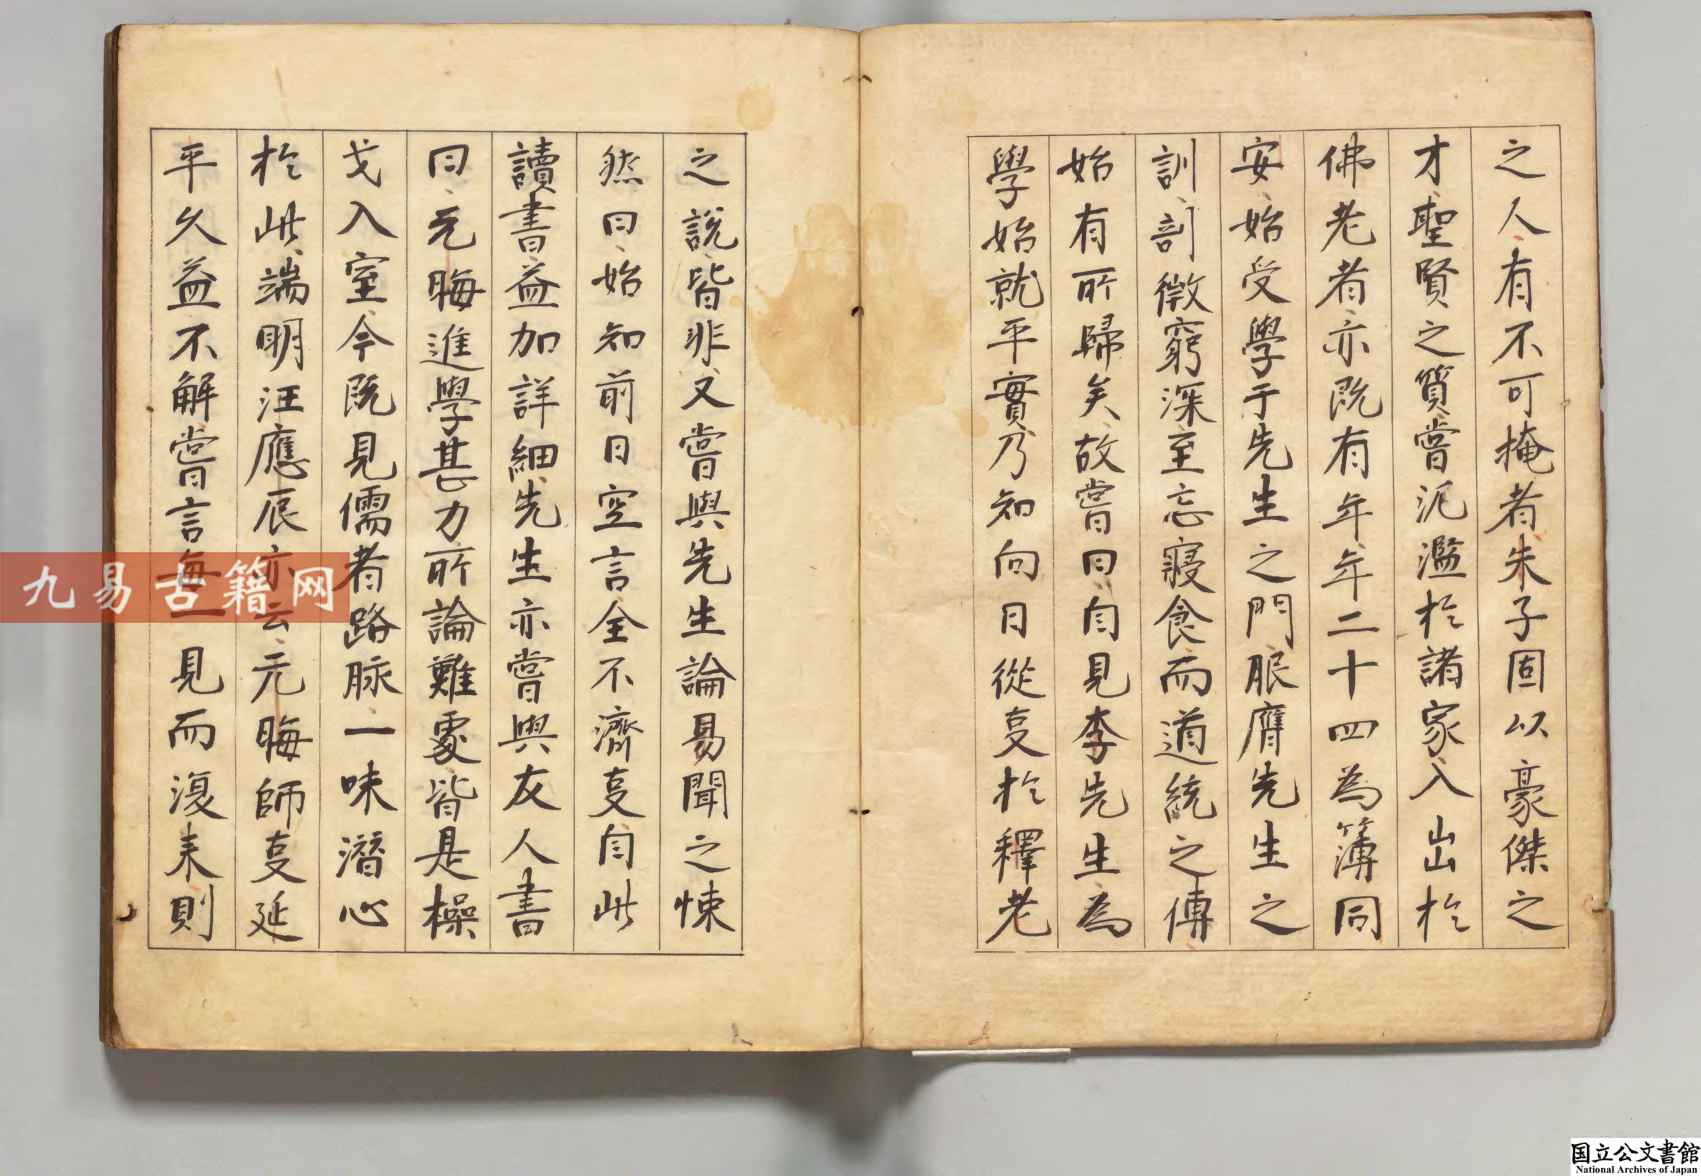 之人有不可掩者朱子固以豪傑之
才聖賢之質嘗汎濫於諸家入出於
佛老者亦既有年年二十四為簿同
安始受學于先生之門服膺先生之
訓剖微窮深至忘寢食而道統之傳
始有所歸矣故嘗曰自見李先生為
學始就平實乃知向日從叓於釋老
之說皆非又嘗與先生論易聞之悚
然曰始知前日空言全不濟叓自此
讀書益加詳細先生亦嘗與友人書
曰元晦進學甚力所論難處皆是操
戈入室今既見儒者路脉一味潛心
於此端明汪應辰亦云元晦師叓延
平久益不解嘗言每一見而復来則
九易古籍网
国立公文書館
National Archives of Japan